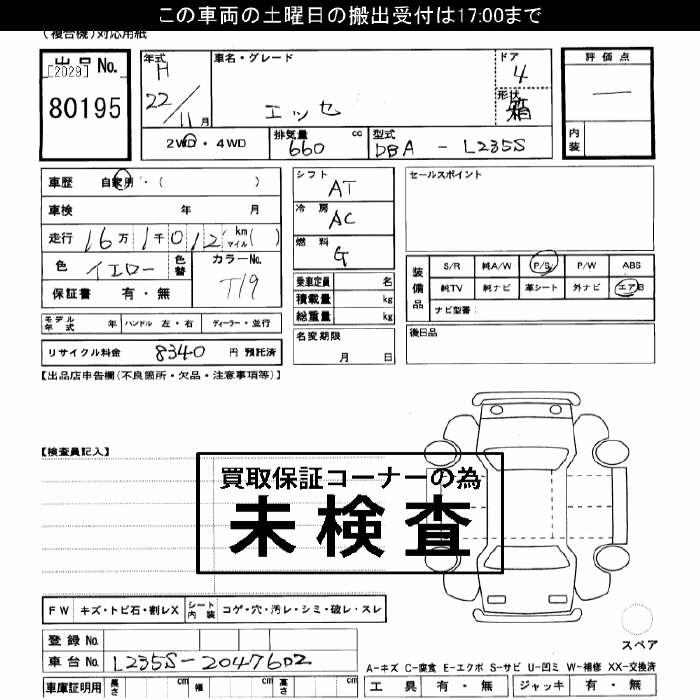 この車両の土曜日の搬出受付は17:00まで
(複合機)対応用紙
出品No.
[2029]
80195
年式 H 22/11月
車名・グレード
エッセ
ドア 4
形状 箱
2WD・4WD
排気量 660 cc
型式 DBA - L235S
評価点
—
内装
車歴 自家用・( )
車検 年 月
走行 16万1千012 km マイル( )
色 イエロー 色替
カラーNo. T19
保証書 有・無
モデル年式 年 ハンドル 左・右 ディーラー・並行
リサイクル料金 8340 円 預託済
シフト AT
冷房 AC
燃料 G
乗車定員 名
積載量 kg
総重量 kg
名変期限
月 日
セールスポイント
装備品
S/R 純A/W P/S P/W ABS
純TV 純ナビ 革シート 外ナビ エアB
ナビ型番:
後日品
【出品店申告欄(不良箇所・欠品・注意事項等)】
【検査員記入】
買取保証コーナーの為
未検査
FW キズ・トビ石・割レX シート内装 コゲ・穴・汚レ・シミ・破レ・スレ
登録No.
車台No. L235S-2047602
車庫証明用 長さ cm 幅 cm 高さ cm
スペア
A-キズ C-腐食 E-エクボ S-サビ U-凹ミ W-補修 XX-交換済
工具 有・無 ジャッキ 有・無